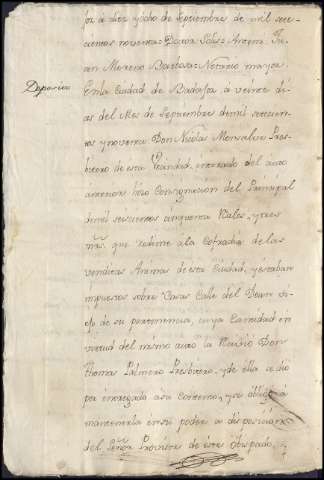 joz à diez yocho de Septiembre de mil sete-
cientos noventa = Doctor Soles = Antemi. Ju-
an Moreno Barbosa Notario mayor.
Deposito
En la Ciudad de Badajoz à veinte di-
as del Mes de Septiembre de mil setecien-
tos y noventa Don Nicolas Monsalve Pres-
bitero de esta Vecindad, enterado del auto
anterior hizo Consignacion del Principal
de mil setecientos cinquenta Reales, y tres
mrs. que redime à la Cofradia de las
venditas Animas de esta Ciudad, y estaban
impuestos sobre Casas Calle del Dean
de su pertenencia, cuya Cantidad en
virtud del mismo auto la Recivio Don
Thomas Palmero Presbitero, y de ella se dio
por entregado a su Contento, y se obligò à
mantenerla en su poder à disposicion
del Señor Provisor de este Obispado,